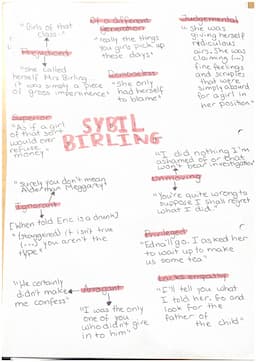 "Girls of that
class-"
Prejudiced
"She called
herself Mrs Birling
it was simply a piece
of gross impertinence"
Of a different
generation
"really the things
you girls pick up
these days!"
Remorseless
"She only
had herself
to blame"
Judgemental
"She was
giving herself
rediculous
airs. She was
claiming (...)
fine feelings
and scruples
that were
simply absurd
for a girl in
her position"
Superior
"As if a girl
of that sort
would ever
refuse
money"
SYBIL
BIRLING
"I did nothing I'm
ashamed of or that
won't bear investigation"
Unmoving
"You're quite wrong to
suppose I shall regret
what I did."
"Surely you don't mean
Alderman Meggarty!"
Ignorant
[When told Eric is a drunk]
"(staggered) it isn't true
(...) you aren't the
type"
Privileged
"Edna'll go. I asked her
to wait up to make
us some tea"
"He certainly
didn't make
me confess"
Arrogant
"I was the only
one of you
who didn't give
in to him"
Lacks empathy
"I'll tell you what
I told her. Go and
look for the
father of
the child"